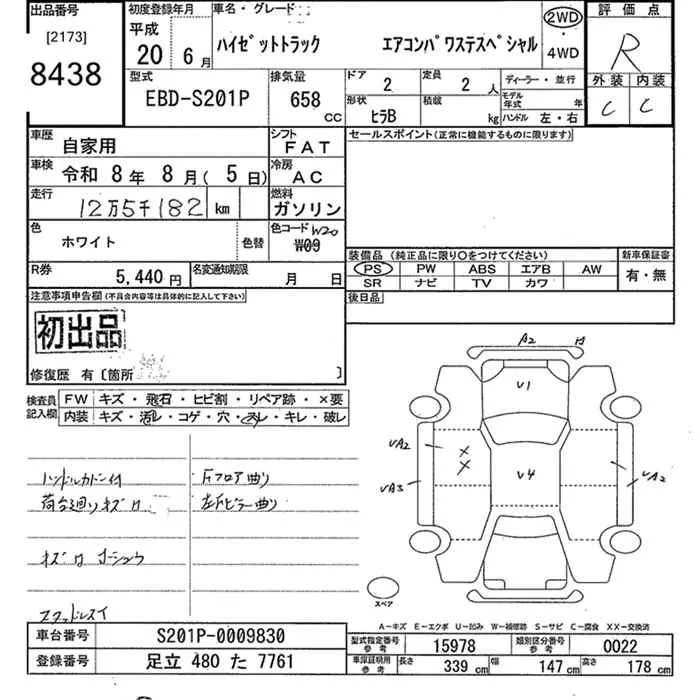 出品番号 初度登録年月 車名・グレード 評価点
[2173] 平成 2WD
20 6月 ハイゼットトラック エアコンパワステスペシャル ・ R
8438 4WD
型式 排気量 ドア 定員 ディーラー・並行 外装 内装
EBD-S201P 658 2 2 人 モデル年式 年 C C
CC 形状 ヒラB 積載 kg ハンドル 左・右
車歴 自家用 シフト FAT セールスポイント(正常に機能するものに限ります)
車検 令和 8年 8月( 5日) 冷房 AC
走行 12万5千182 km 燃料 ガソリン
色 ホワイト 色替 色コード W20
W09
装備品 (純正品に限り○をつけてください) 新車保証書
PS PW ABS エアB AW 有・無
SR ナビ TV カワ
R券 5,440円 名変通知期限 月 日 後日品
注意事項申告欄(不具合内容等は具体的に記入して下さい)
初出品
修復歴 有〔箇所 〕
検査員 FW キズ・飛石・ヒビ割・リペア跡・×要
記入欄 内装 キズ・汚レ・コゲ・穴・スレ・キレ・破レ
A2
V1
VA2
V4
VA3
VA2
ハンドルカバー付 Fフロア曲り
荷台廻りキズ
左Fピラー曲り
スペア
A-キズ E-エクボ U-凹み W-補修跡 S-サビ C-腐食 XX-交換済
車台番号 S201P-0009830 型式指定番号 参考 15978 類別区分番号 参考 0022
登録番号 足立 480 た 7761 車庫証明用 参考 長さ 339 cm 幅 147 cm 高さ 178 cm